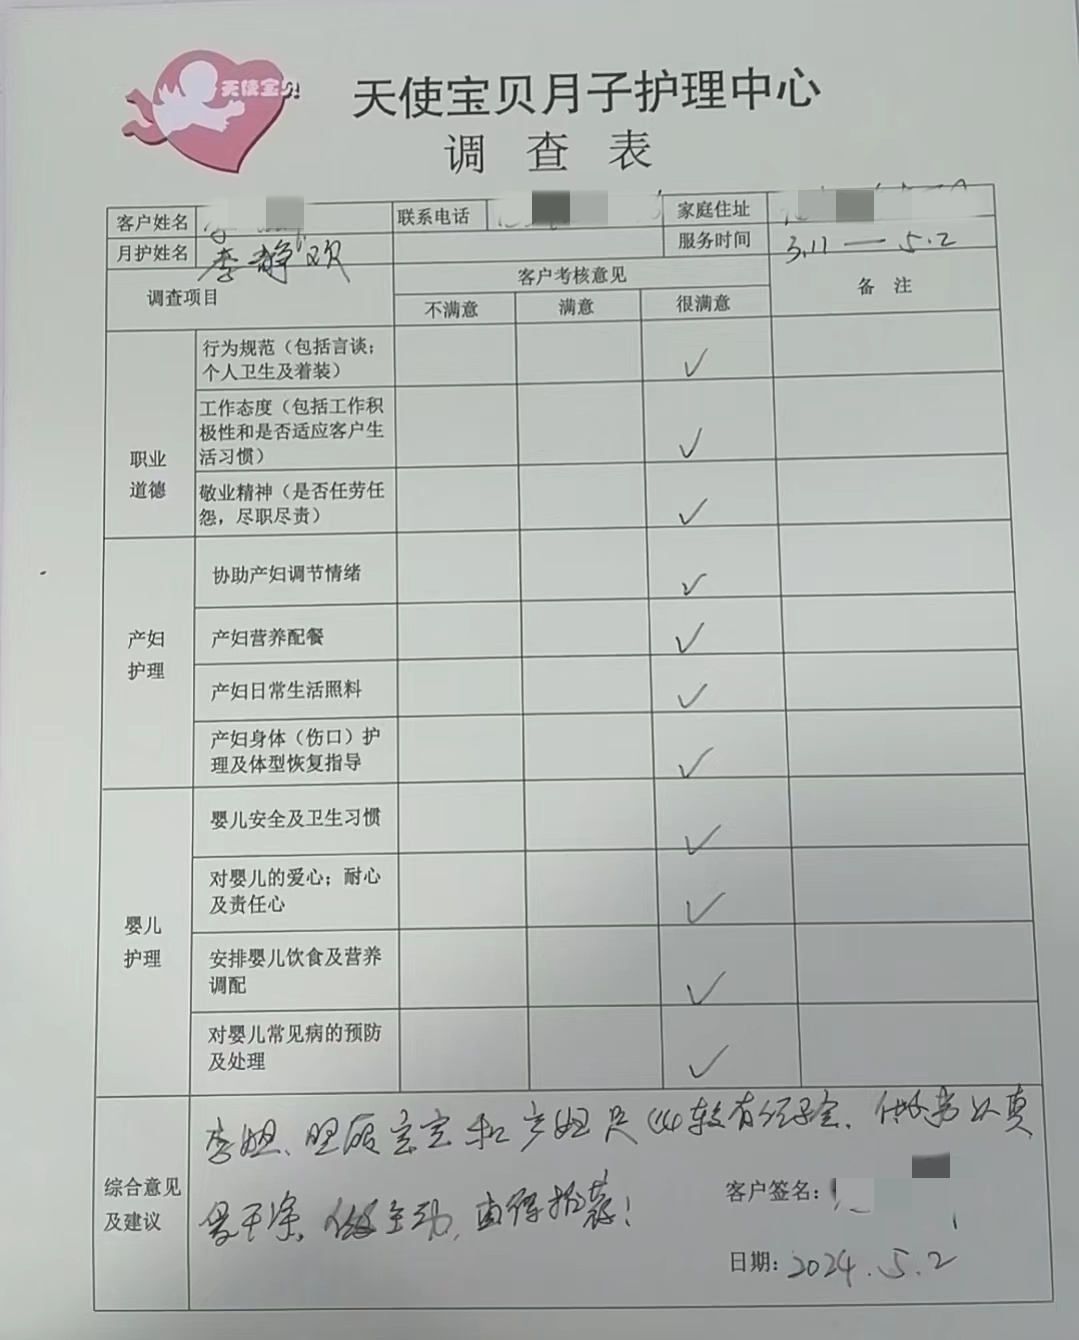 天使宝贝
天使宝贝月子护理中心
调查表
客户姓名 联系电话 家庭住址
月护姓名 李静欢 服务时间 3.11—5.2
调查项目 客户考核意见 备 注
不满意 满意 很满意
职业
道德
行为规范（包括言谈；
个人卫生及着装） ✓
工作态度（包括工作积
极性和是否适应客户生
活习惯） ✓
敬业精神（是否任劳任
怨，尽职尽责） ✓
产妇
护理
协助产妇调节情绪 ✓
产妇营养配餐 ✓
产妇日常生活照料 ✓
产妇身体（伤口）护
理及体型恢复指导 ✓
婴儿
护理
婴儿安全及卫生习惯 ✓
对婴儿的爱心；耐心
及责任心 ✓
安排婴儿饮食及营养
调配 ✓
对婴儿常见病的预防
及处理 ✓
综合意见
及建议
李姐、照顾宝宝和产妇是比较有经验、做事认真
干净，做主动，值得推荐！
客户签名：
日期：2024.5.2